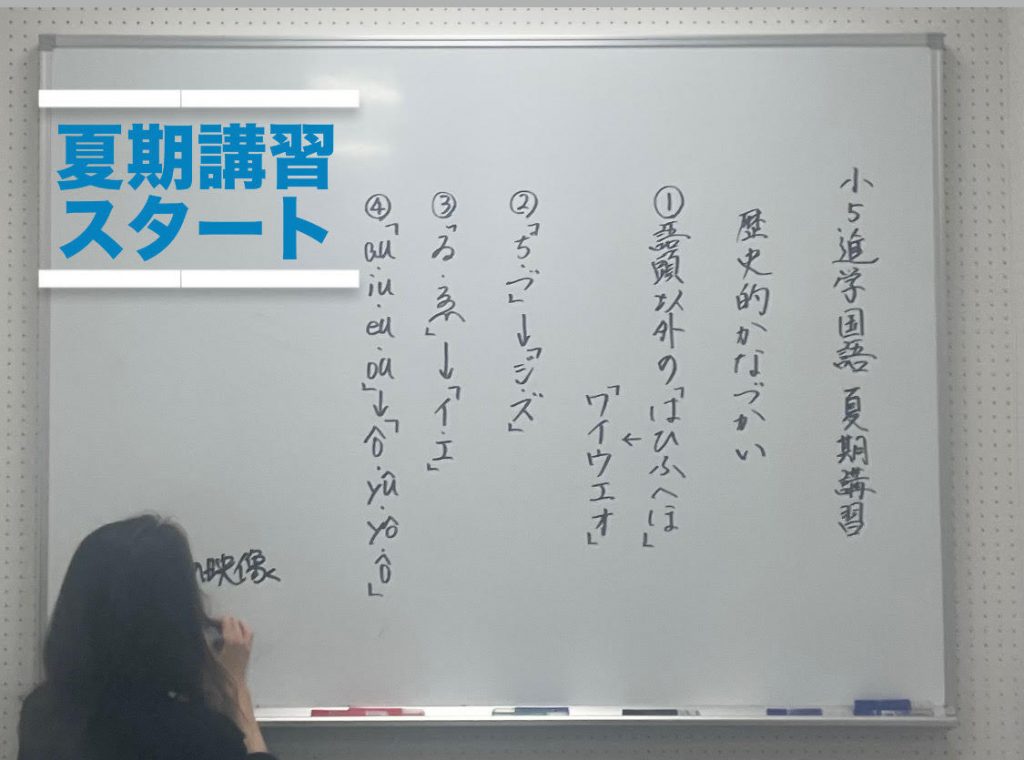 夏期講習
スタート
小5進学国語 夏期講習
歴史的かなづかい
①語頭以外の「はひふへほ」
←
「ワイウエオ」
②「ぢ・づ」↓「ジ・ズ」
③「ゐ・ゑ」↓「イ・エ」
④「au・iu・eu・ou」↓「ô・yû・yô・ô」
映像